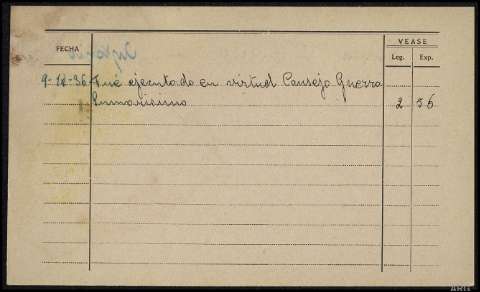 VEASE
FECHA Leg. Exp.
9-12-36 Fué ejecutado en virtud Consejo Guerra
Sumarisimo 2 56